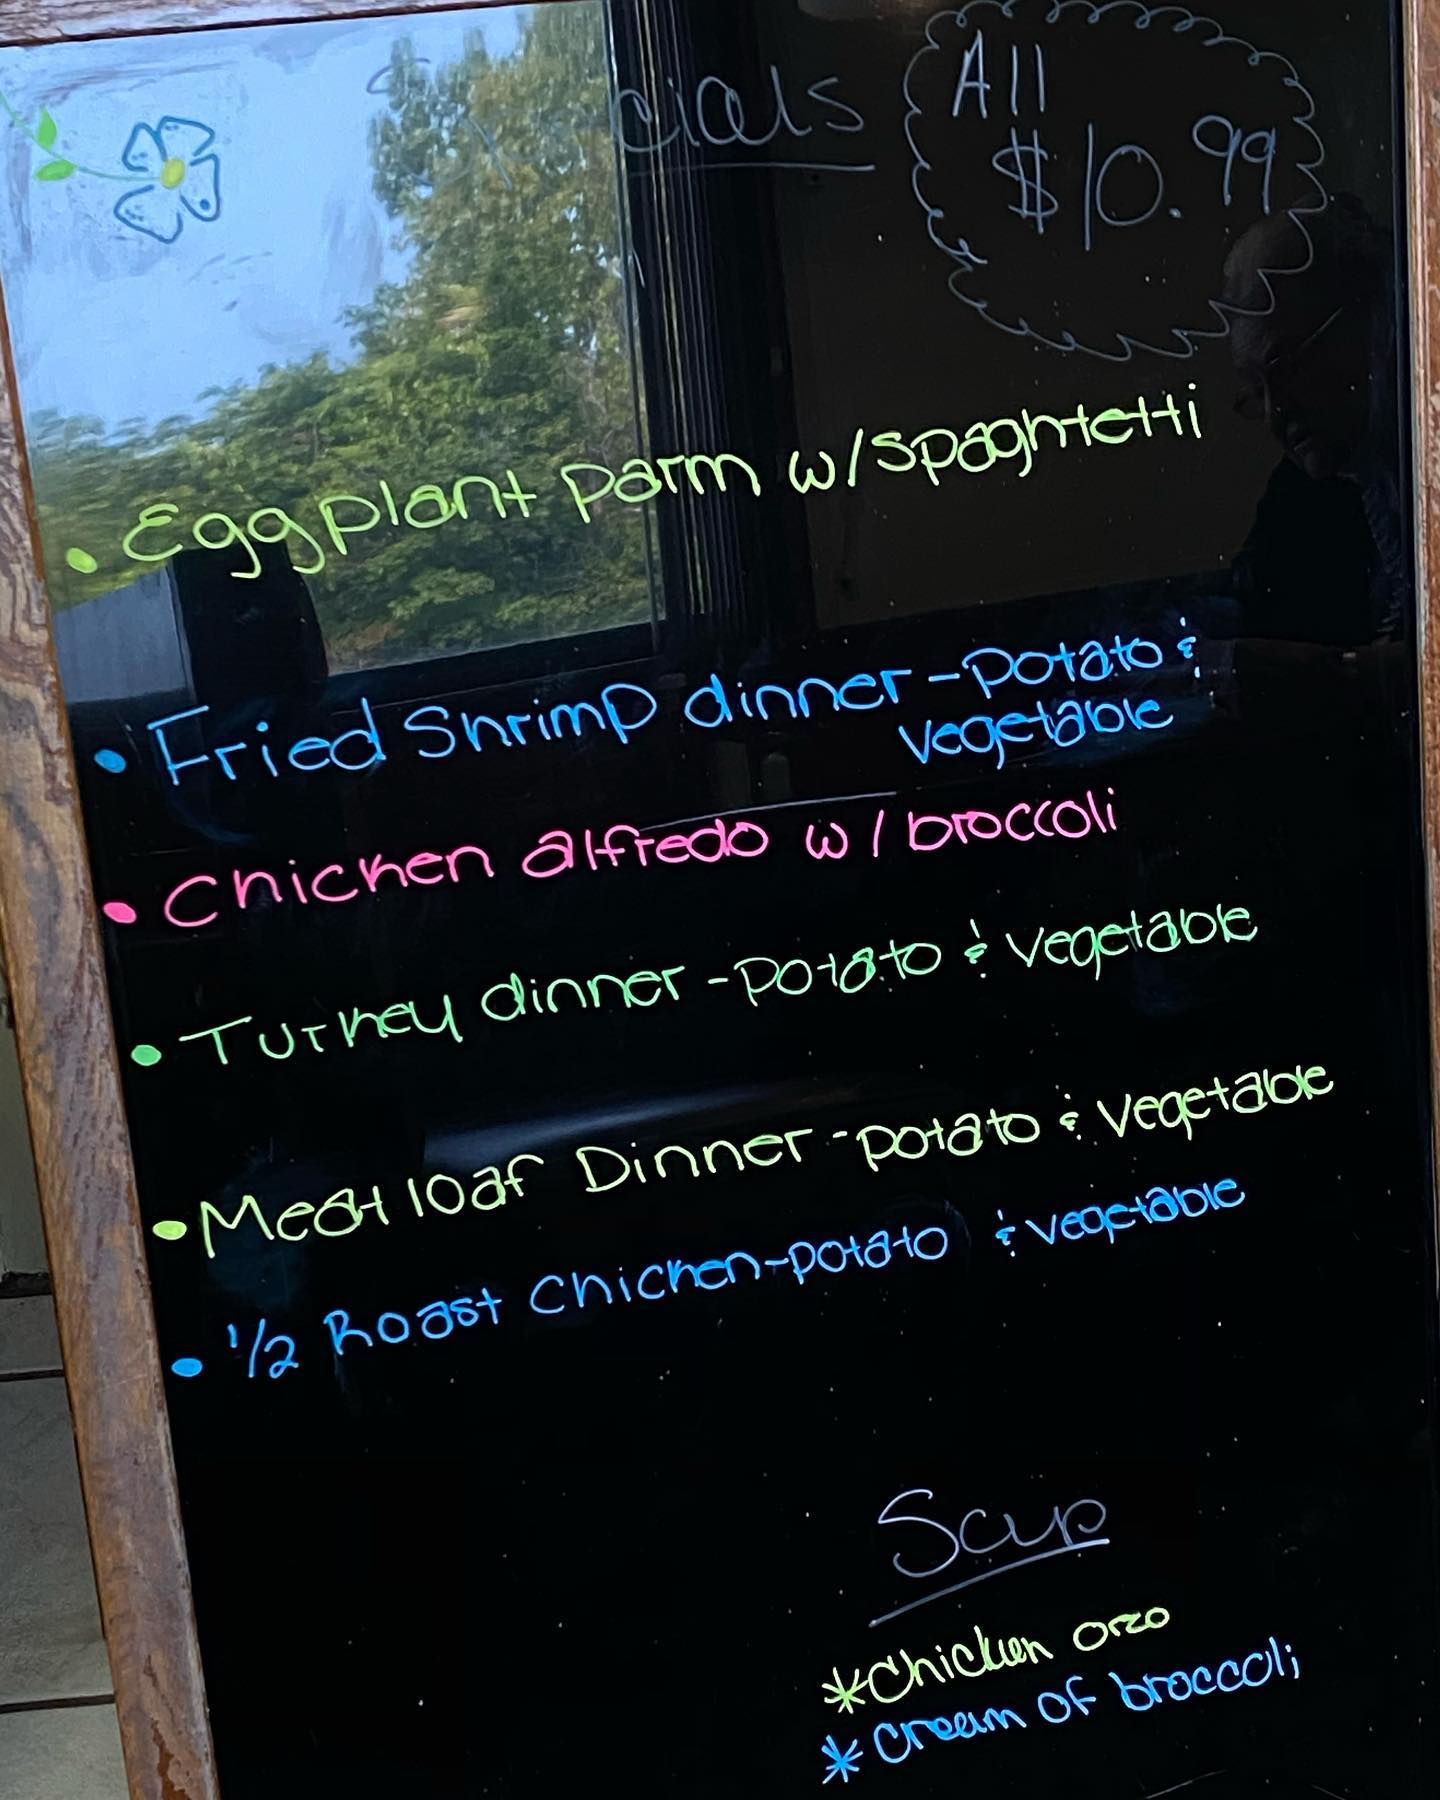 Specials
All
$10.99
• Eggplant parm w/spaghtetti
• Fried Shrimp dinner - potato &
vegetable
• Chicken alfredo w/broccoli
• Turkey dinner - potato & vegetable
• Meat loaf Dinner - potato & vegetable
• 1/2 Roast Chicken - potato & vegetable
Soup
* Chicken orzo
* Cream of broccoli